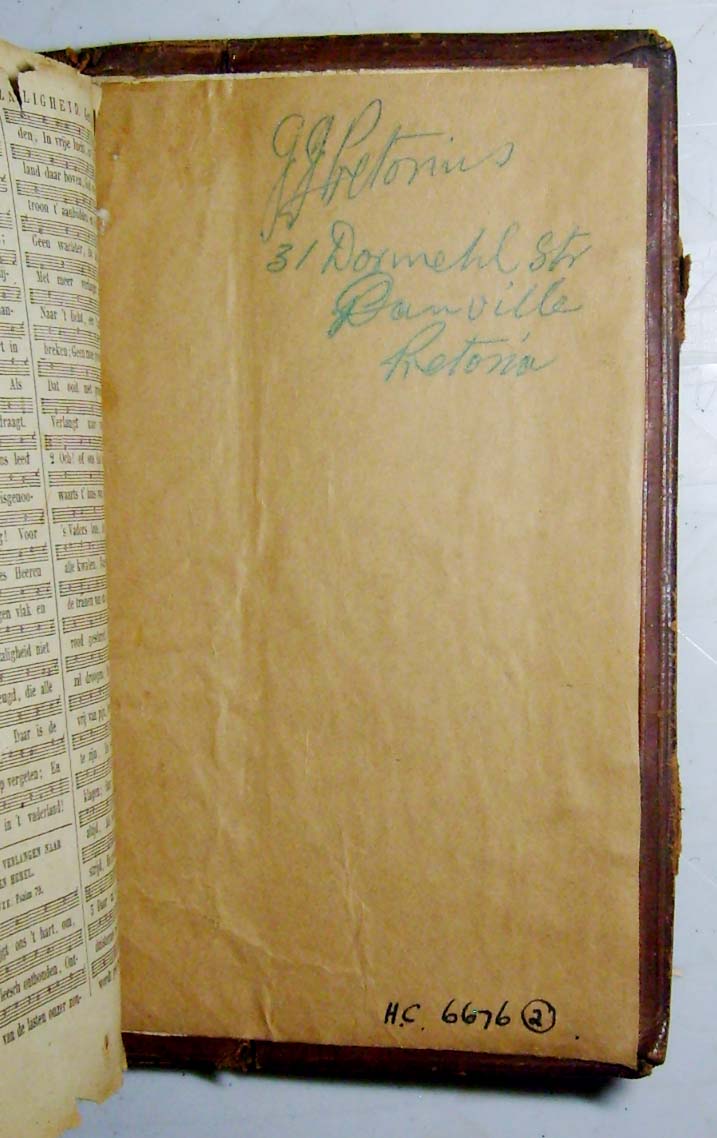 LIGHEID.
den, In vrije
land daar boven,
troon t' aanbidden
Geen
Met meer
Naar 't licht, een
breken: Geen
Dat ood met
Verlangt naar
2 Och! of ons
waarts t' huis
's Vaders huis,
alle kwalen,
de tranen van
rood
zal droogen
vrij van
te zijn,
klagen:
altijd,
strijd,
5 Daar
rt in
Als
draagt.
ns leed
isgenoo-
g! Voor
es Heeren
gen vlak en
zaligheid niet
eugd, die alle
Daar is de
p vergeten; En
in 't vaderland!
VERLANGEN NAAR
EN HEMEL.
Psalm 79.
igt ons 't hart, om,
leesch onthonden, Ont-
van de lasten onzer zon-
JJ Pretorius
31 Dormehl Str
Danville
Pretoria
H.C. 6676 2